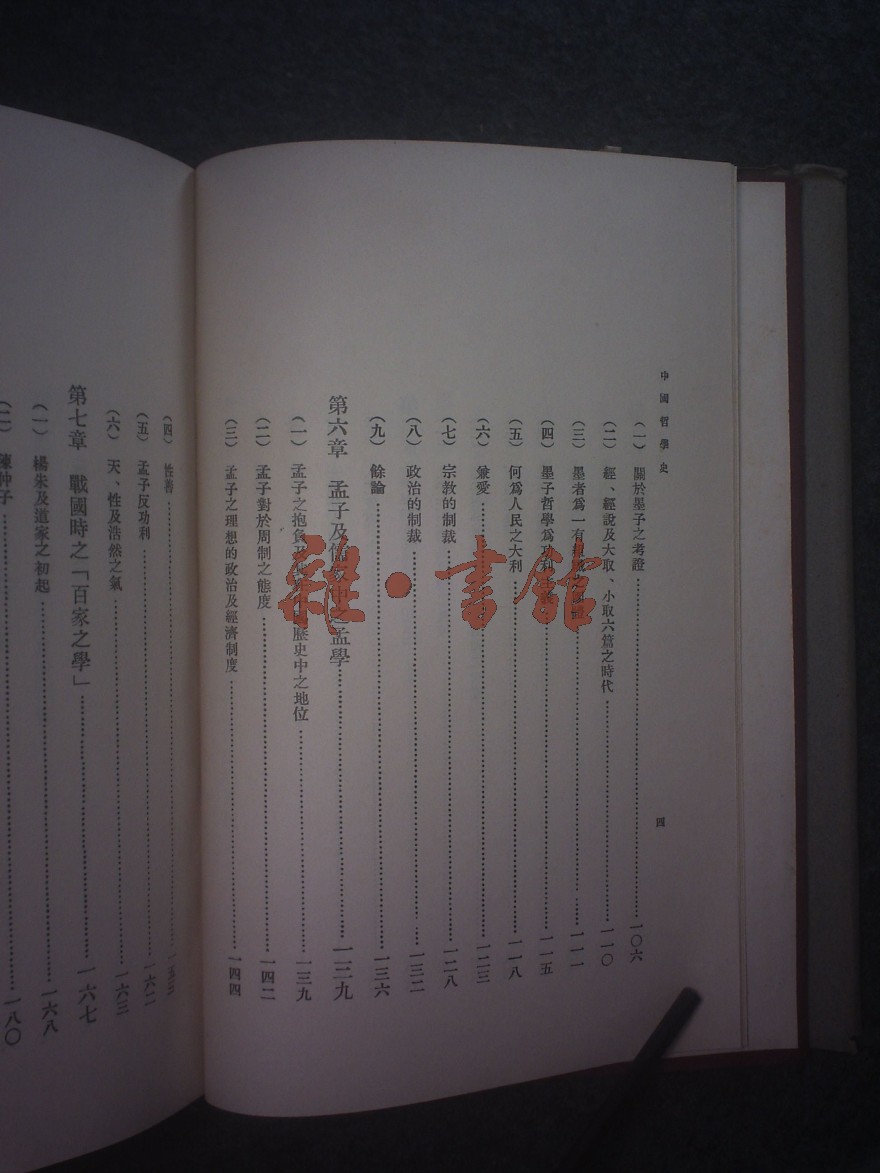 中國哲學史
四
(一) 關於墨子之考證……一〇六
(二) 經、經說及大取、小取六篇之時代……一一〇
(三) 墨者為一有……一一一
(四) 墨子哲學為功利……一一五
(五) 何為人民之大利……一一八
(六) 兼愛……一二三
(七) 宗教的制裁……一二八
(八) 政治的制裁……一三二
(九) 餘論……一三六
第六章 孟子及儒家中之孟學……一二九
(一) 孟子之抱負及……歷史中之地位……一三九
(二) 孟子對於周制之態度……一四二
(三) 孟子之理想的政治及經濟制度……一四四
(四) 性善……一五三
(五) 孟子反功利……一六二
(六) 天、性及浩然之氣……一六三
第七章 戰國時之「百家之學」……一六七
(一) 楊朱及道家之初起……一六八
(二) 陳仲子……一八〇
雜·書館